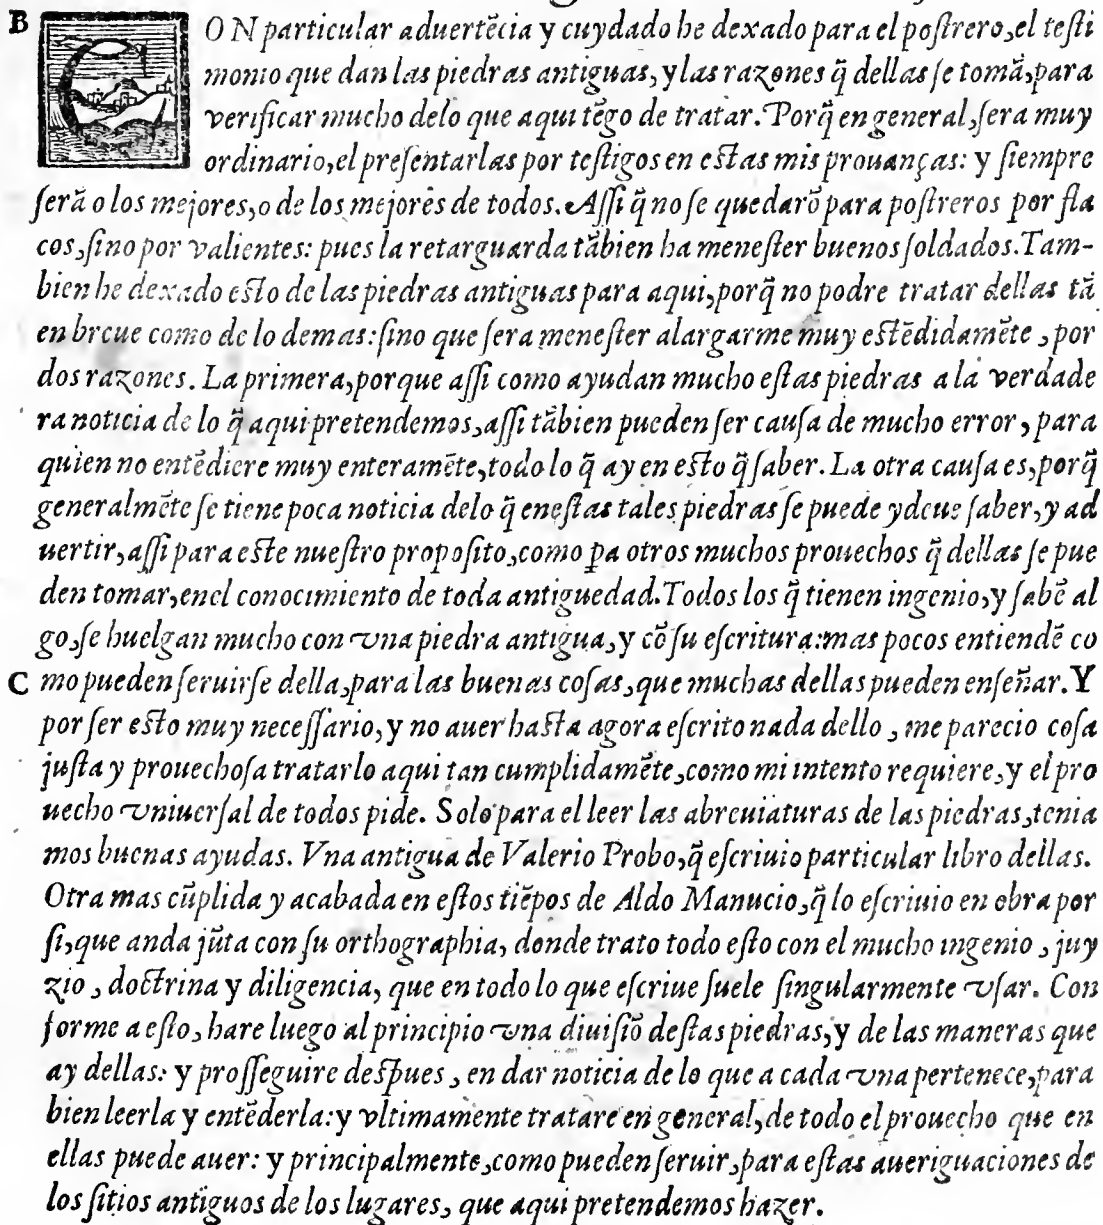 B CON particular aduertẽcia y cuydado he dexado para el poſtrero, el teſti
monio que dan las piedras antiguas, y las razones q̃ dellas ſe tomã, para
verificar mucho delo que aqui tẽgo de tratar. Porq̃ en general, ſera muy
ordinario, el preſentarlas por teſtigos en eſtas mis prouanças: y ſiempre
ſerã o los mejores, o de los mejores de todos. Aſſi q̃ no ſe quedarõ para poſtreros por fla
cos, ſino por valientes: pues la retarguarda tãbien ha meneſter buenos ſoldados. Tam-
bien he dexado eſto de las piedras antiguas para aqui, porq̃ no podre tratar dellas tã
en breue como de lo demas: ſino que ſera meneſter alargarme muy eſtẽdidamẽte, por
dos razones. La primera, porque aſſi como ayudan mucho eſtas piedras a la verdade
ra noticia de lo q̃ aqui pretendemos, aſſi tãbien pueden ſer cauſa de mucho error, para
quien no entẽdiere muy enteramẽte, todo lo q̃ ay en eſto q̃ ſaber. La otra cauſa es, porq̃
generalmẽte ſe tiene poca noticia delo q̃ eneſtas tales piedras ſe puede ydeue ſaber, y ad
uertir, aſſi para eſte nueſtro propoſito, como ꝑa otros muchos prouechos q̃ dellas ſe pue
den tomar, enel conocimiento de toda antiguedad. Todos los q̃ tienen ingenio, y ſabẽ al
go, ſe huelgan mucho con vna piedra antigua, y cõ ſu eſcritura: mas pocos entiendẽ co
C mo pueden ſeruirſe della, para las buenas coſas, que muchas dellas pueden enſeñar. Y
por ſer eſto muy neceſſario, y no auer haſta agora eſcrito nada dello, me parecio coſa
juſta y prouechoſa tratarlo aqui tan cumplidamẽte, como mi intento requiere, y el pro
uecho vniuerſal de todos pide. Solo para el leer las abreuiaturas de las piedras, tenia
mos buenas ayudas. Vna antigua de Valerio Probo, q̃ eſcriuio particular libro dellas.
Otra mas cũplida y acabada en eſtos tiẽpos de Aldo Manucio, q̃ lo eſcriuio en obra por
ſi, que anda jũta con ſu orthographia, donde trato todo eſto con el mucho ingenio, juy
zio, doctrina y diligencia, que en todo lo que eſcriue ſuele ſingularmente vſar. Con
forme a eſto, hare luego al principio vna diuiſiõ deſtas piedras, y de las maneras que
ay dellas: y proſſeguire deſpues, en dar noticia de lo que a cada vna pertenece, para
bien leerla y entẽderla: y vltimamente tratare en general, de todo el prouecho que en
ellas puede auer: y principalmente, como pueden ſeruir, para eſtas aueriguaciones de
los ſitios antiguos de los lugares, que aqui pretendemos hazer.